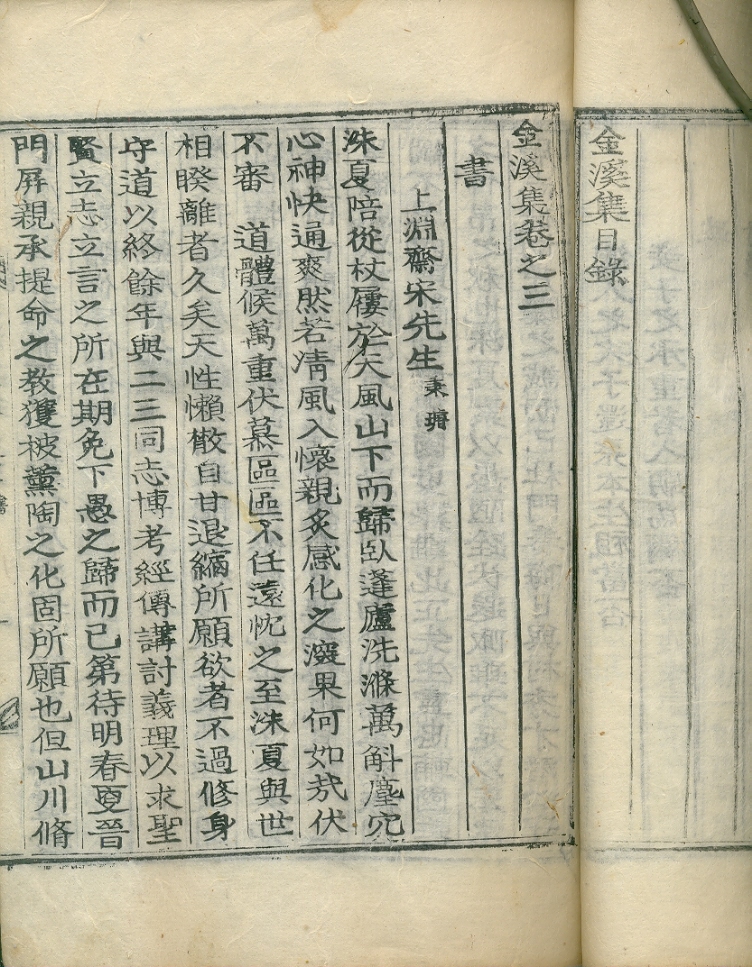 金溪集目錄
金溪集卷之三
書
上淵齋宋先生 秉璿
洙夏陪從杖屨於天風山下而歸臥蓬廬洗滌萬斛塵穴
心神快通爽然若淸風入懷親炙感化之深果何如㢤伏
不審 道體候萬重伏慕區區不任遠忱之至洙夏與世
相睽離者久矣天性懶散自甘退縮所願欲者不過修身
守道以終餘年與二三同志博考經傳講討義理以求聖
賢立志立言之所在期免下愚之歸而已第待明春夏晉
門屛親承提命之敎獲被薰陶之化固所願也但山川脩